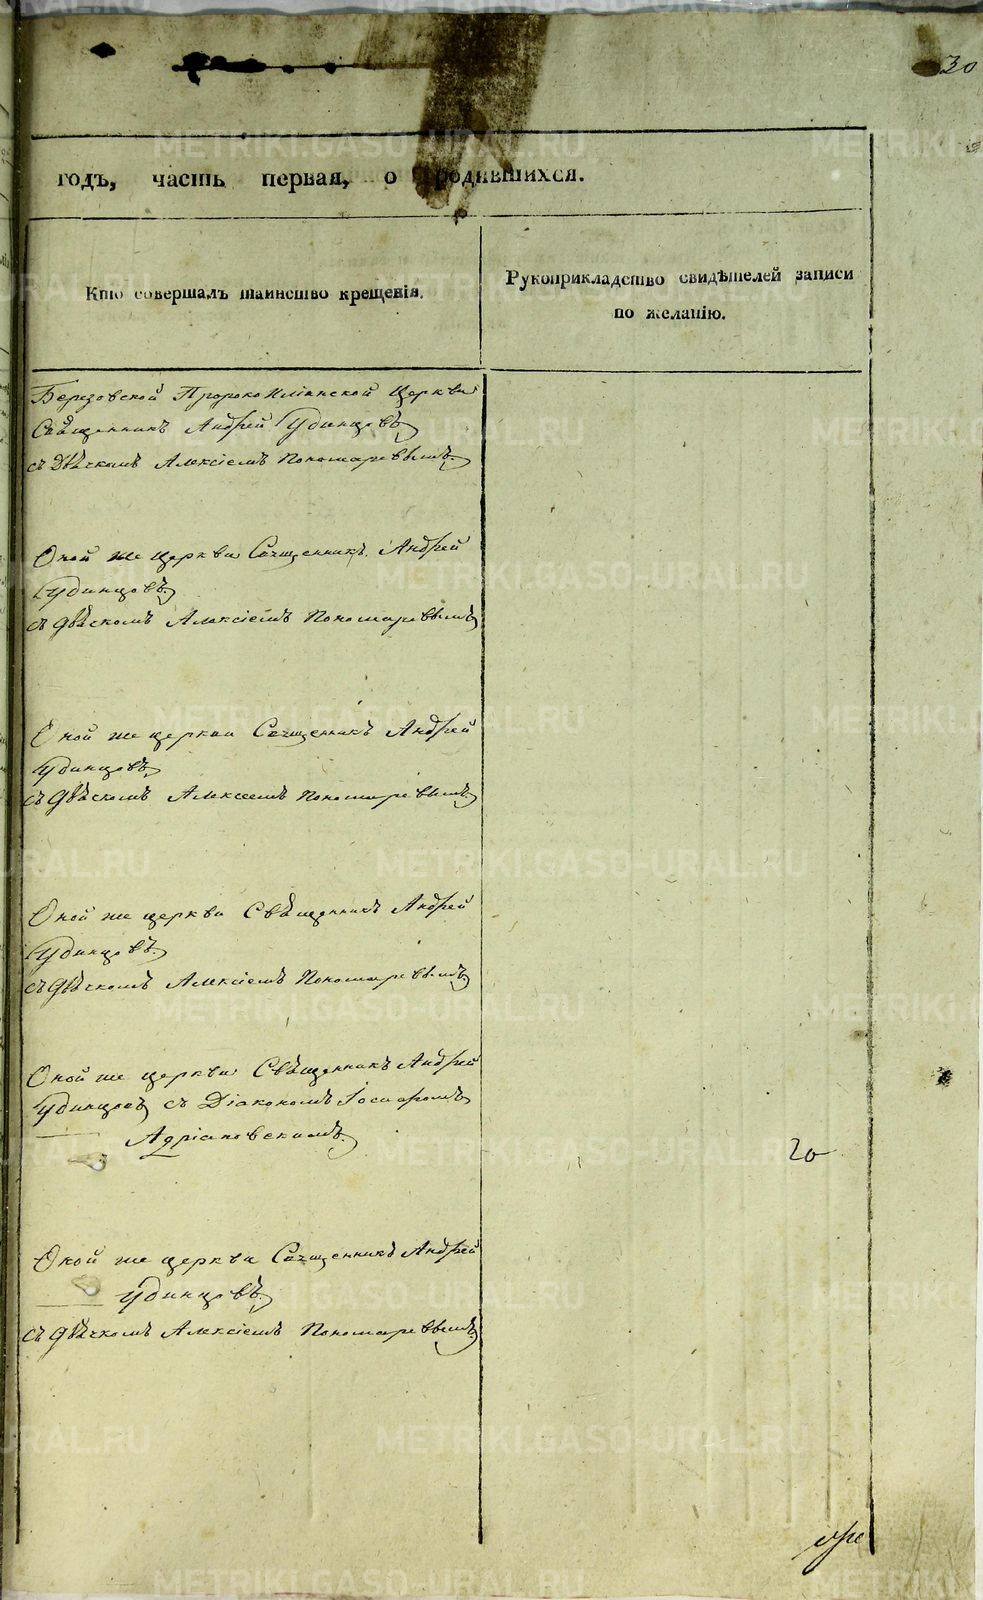 30
годъ, часть первая, о родившихся.
Кто совершалъ таинство крещенія.
Рукоприкладство свидѣтелей записи
по желанію.
Березовской Пророкоиліинской Церкви
Священникъ Андрей Удинцовъ
съ Дьячкомъ Алексіемъ Пономаревымъ.
Оной же церкви Священникъ Андрей
Удинцовъ
съ Дьячкомъ Алексіемъ Пономаревымъ
Оной же церкви Священникъ Андрей
Удинцовъ
съ Дьячкомъ Алексеемъ Пономаревымъ
Оной же церкви Священникъ Андрей
Удинцовъ
съ Дьячкомъ Алексіемъ Пономаревымъ
Оной же церкви Священникъ Андрей
Удинцовъ съ Діакономъ Іосифомъ
Адріановскимъ
20
Оной же церкви Священникъ Андрей
Удинцовъ
съ Дьячкомъ Алексіемъ Пономаревымъ
METRIKI.GASO-URAL.RU